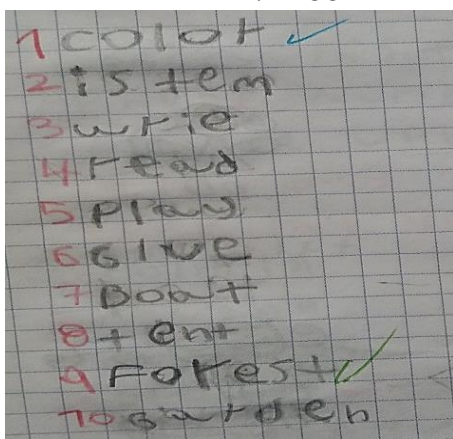 1 color
2 istem
3 wrie
4 read
5 play
6 Glue
7 Boat
8 tent
9 Forest
10 Garden